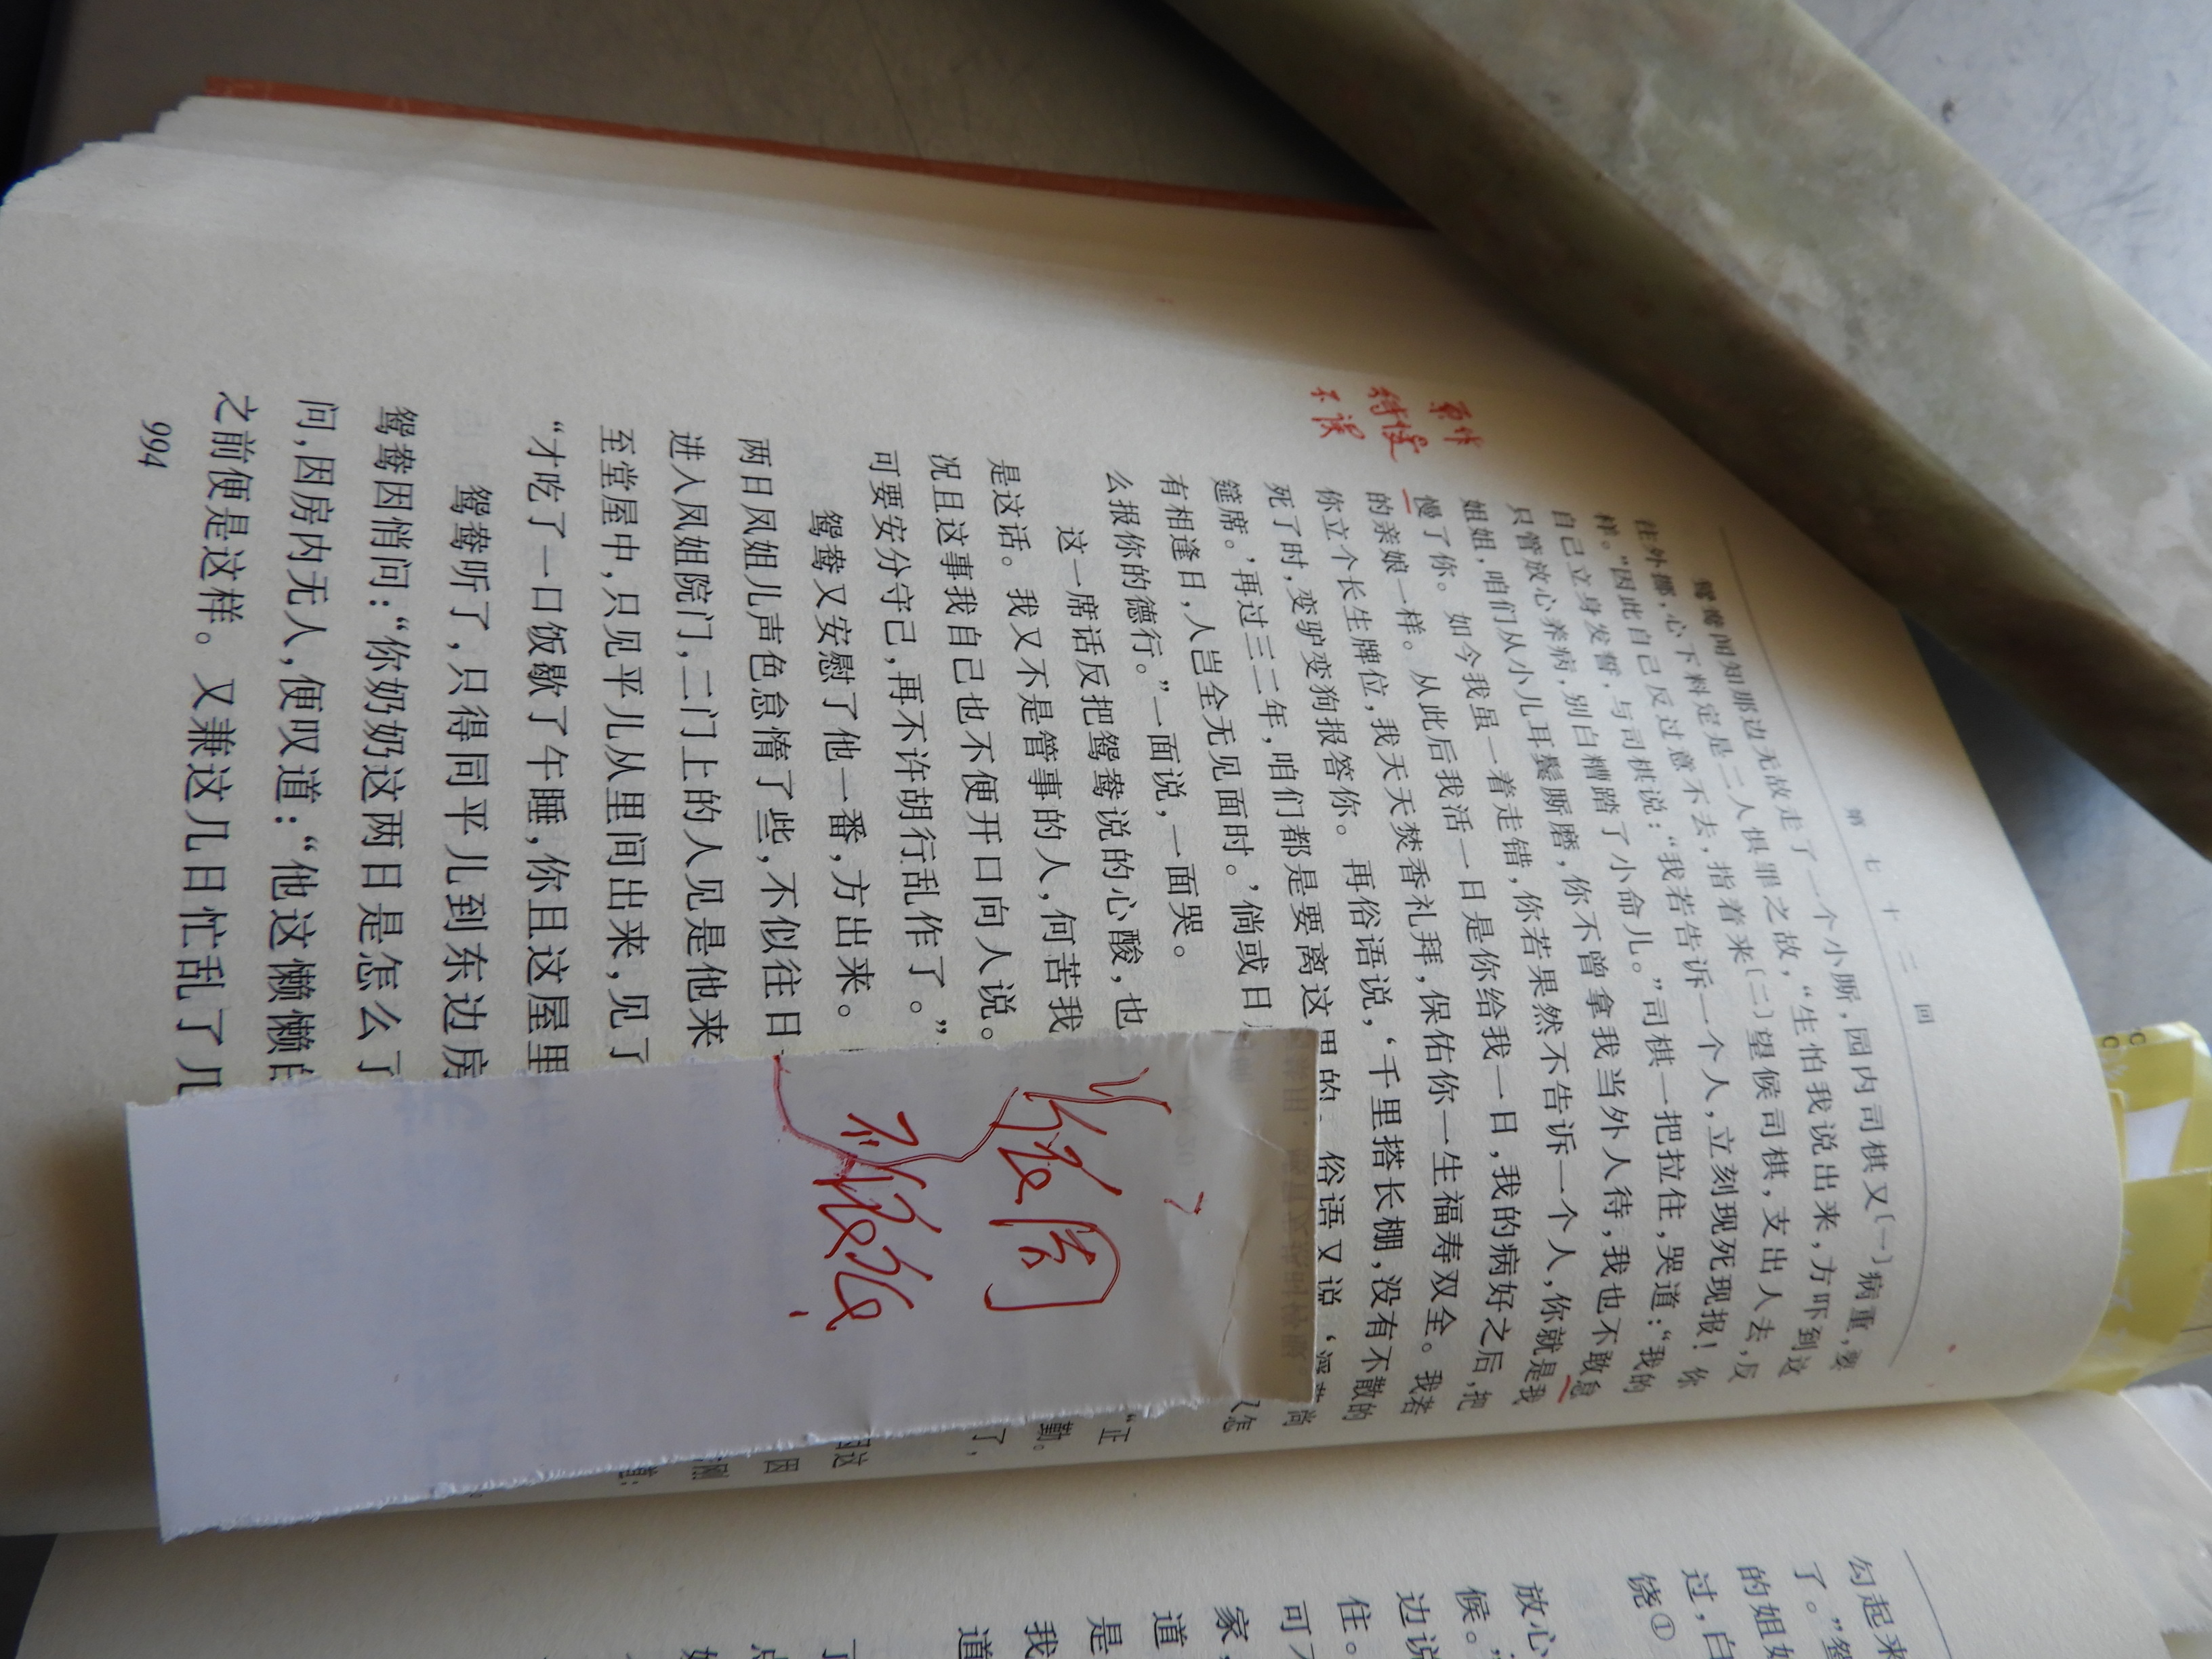 第七十二回
鸳鸯闻知那边无故走了一个小厮，园内司棋又〔一〕病重，要
往外挪，心下料定是二人惧罪之故，“生怕我说出来，方吓到这
样。”因此自己反过意不去，指着来〔二〕望候司棋，支出人去，反
自己立身发誓，与司棋说：“我若告诉一个人，立刻现死现报！你
只管放心养病，别白糟踏了小命儿。”司棋一把拉住，哭道：“我的
姐姐，咱们从小儿耳鬓厮磨，你不曾拿我当外人待，我也不敢怠
慢了你。如今我虽一着走错，你若果然不告诉一个人，你就是我
的亲娘一样。从此后我活一日是你给我一日，我的病好之后，把
你立个长生牌位，我天天焚香礼拜，保佑你一生福寿双全。我若
死了时，变驴变狗报答你。再俗语说，‘千里搭长棚，没有不散的
筵席。’再过三二年，咱们都是要离这里的。俗语又说，‘浮萍尚
有相逢日，人岂全无见面时。’倘或日
又怎
么报你的德行。”一面说，一面哭。
这一席话反把鸳鸯说的心酸，也
“正
是这话。我又不是管事的人，何苦我
勤。
况且这事我自己也不便开口向人说。
了，
可要安分守己，再不许胡行乱作了。”
鸳鸯又安慰了他一番，方出来。
因这
两日凤姐儿声色怠惰了些，不似往日
因
进入凤姐院门，二门上的人见是他来
刚
至堂屋中，只见平儿从里间出来，见了
道：
“才吃了一口饭歇了午睡，你且这屋里
鸳鸯听了，只得同平儿到东边房
鸳鸯因悄问：“你奶奶这两日是怎么了
问，因房内无人，便叹道：“他这懒懒的
之前便是这样。又兼这几日忙乱了几
994
原作
待慢
不误
勾起来
了。”鸳
的姐姐
过，白
饶①
放心
候。”
边说
住。
可
家，
道
是
我
道
了
点